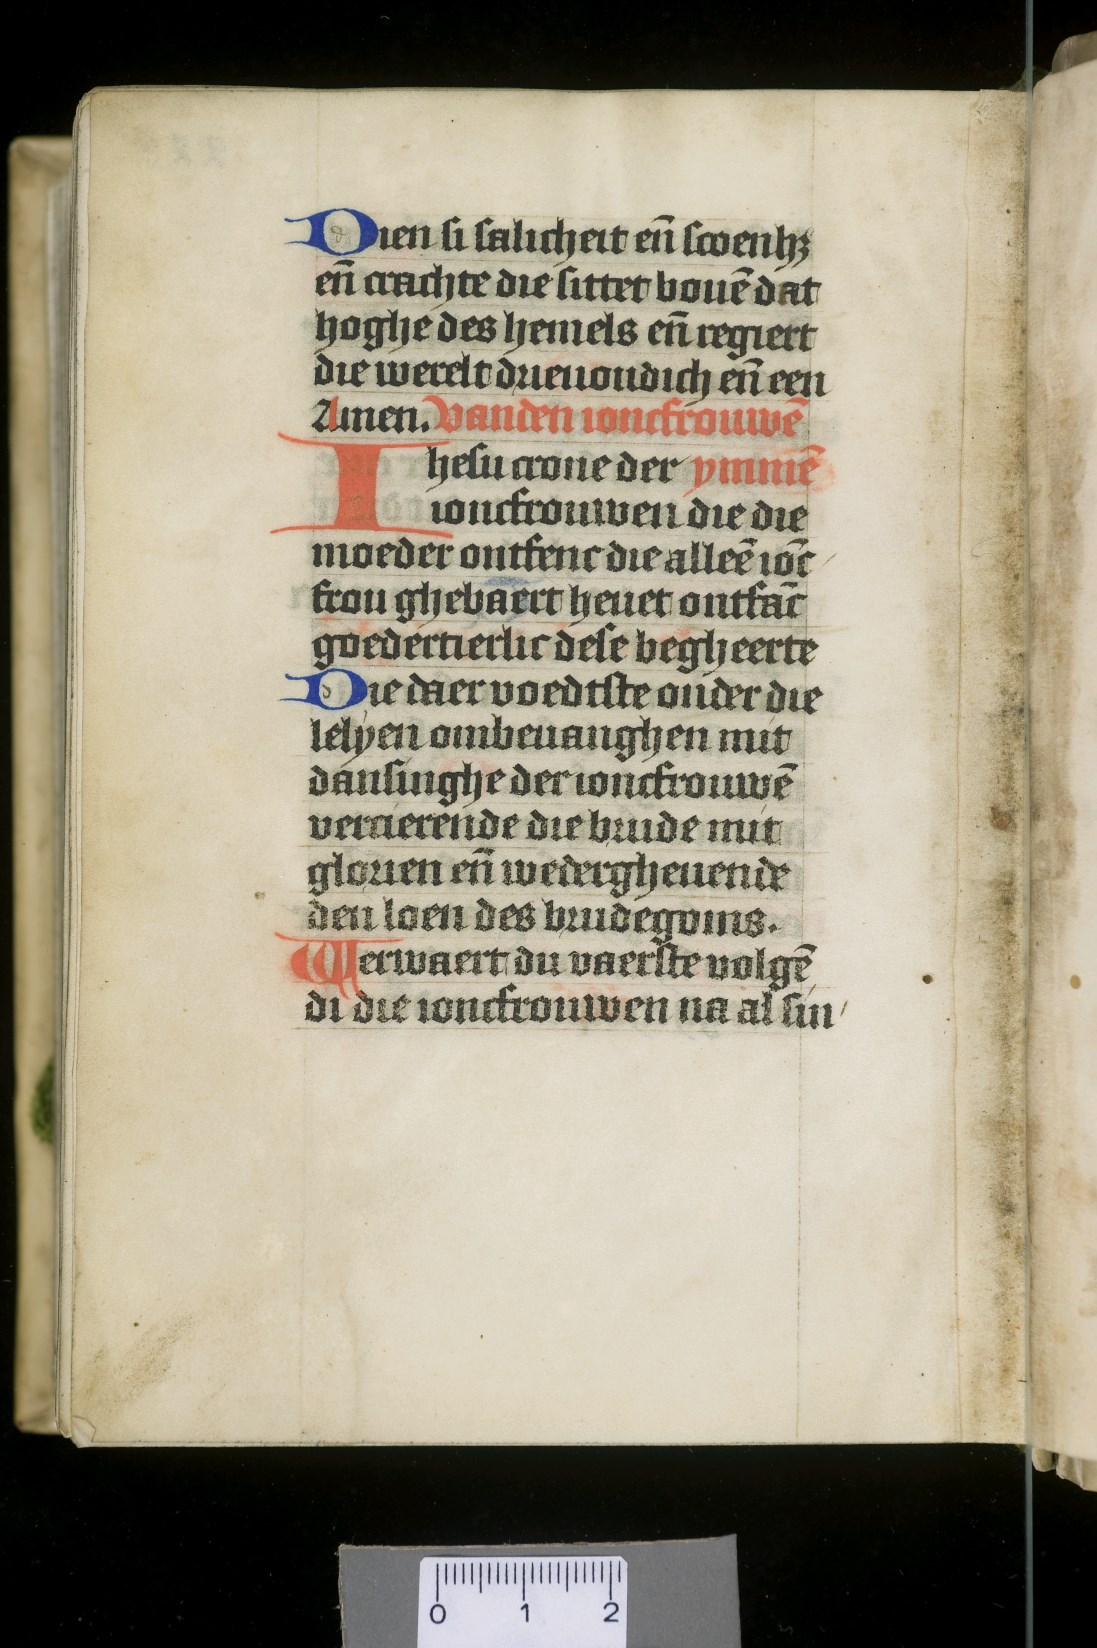 Dien si salicheit en̄ scoenhʒ
en̄ crachte die sittet bouē dat
hoghe des hemels en̄ regiert
die werelt drieuoudich en̄ een
Amen. Vanden ioncfrouwē
Ihesu crone der ymmē
ioncfrouwen die die
moeder ontfenc die alleē iōc
frou ghebaert heuet ontfāc
goedertierlic dese begheerte
Die daer voedtste onder die
lelyen ombeuanghen mit
dansinghe der ioncfrouwē
vercierende die bruide mit
glorien en̄ wedergheuende
den loen des brudegoms.
Werwaert du vaerste volgē
di die ioncfrouwen na al sin
0 1 2